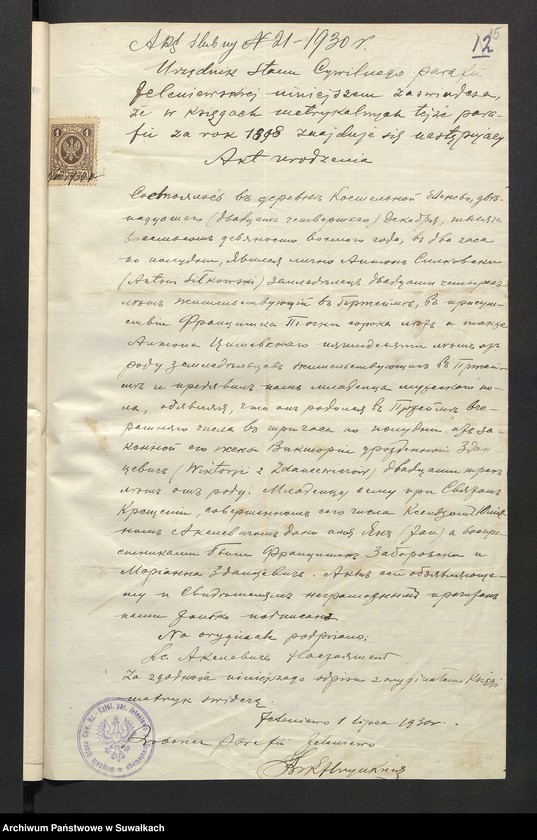 Akt ślubny N 21 - 1930 r.
12
5
Urzędnik Stanu Cywilnego parafii
Jeleniewskiej niniejszem zaświadcza,
że w księgach metrykalnych tejże para-
fii za rok 1898 znajduje się następujący
Akt urodzenia
1 1
1930 r.
Состоялось въ деревнѣ Костельной Еленево, двѣ-
надцатаго (двадцать четвертаго) Декабря, тысяча
восемьсотъ девяносто восьмого года, въ два часа
по полудни, явился лично Антонъ Сильковски
(Antoni Silkowski) земледѣлецъ двадцати четырехъ
лѣтъ жительствующий въ въ присут-
ствіи Францишка сорока лѣтъ а также
Антона пятидесяти лѣтъ отъ
роду земледѣльцевъ жительствующихъ въ
и предъявилъ намъ младенца мужескаго по-
ла, объявляя, что онъ родился въ вче-
рашняго числа въ три часа по полудни отъ за-
конной его жены Викторіи урожденной Здан-
цевичъ (Wiktorji z Zdancewiczów) двадцати трехъ
лѣтъ отъ роду. Младенцу сему при Святомъ
Крещеніи, совершенномъ сего числа Ксендзомъ
Акелевичемъ дано имя Янъ (Jan) а воспрі-
емниками были Францишекъ Заборовски и
Маріанна Зданцевичъ. Актъ сей объявляюще-
му и Свидѣтелямъ неграмотнымъ прочитанъ
нами только подписанъ
Na oryginale podpisano:
Кс. Акелевичъ Настоятель
Za zgodność niniejszego odpisu z oryginałem Księgi
metryk świadczę.
Jeleniewo 1 lipca 1930 r.
Proboszcz parafii Jeleniewo
Archiwum Państwowe w Suwałkach